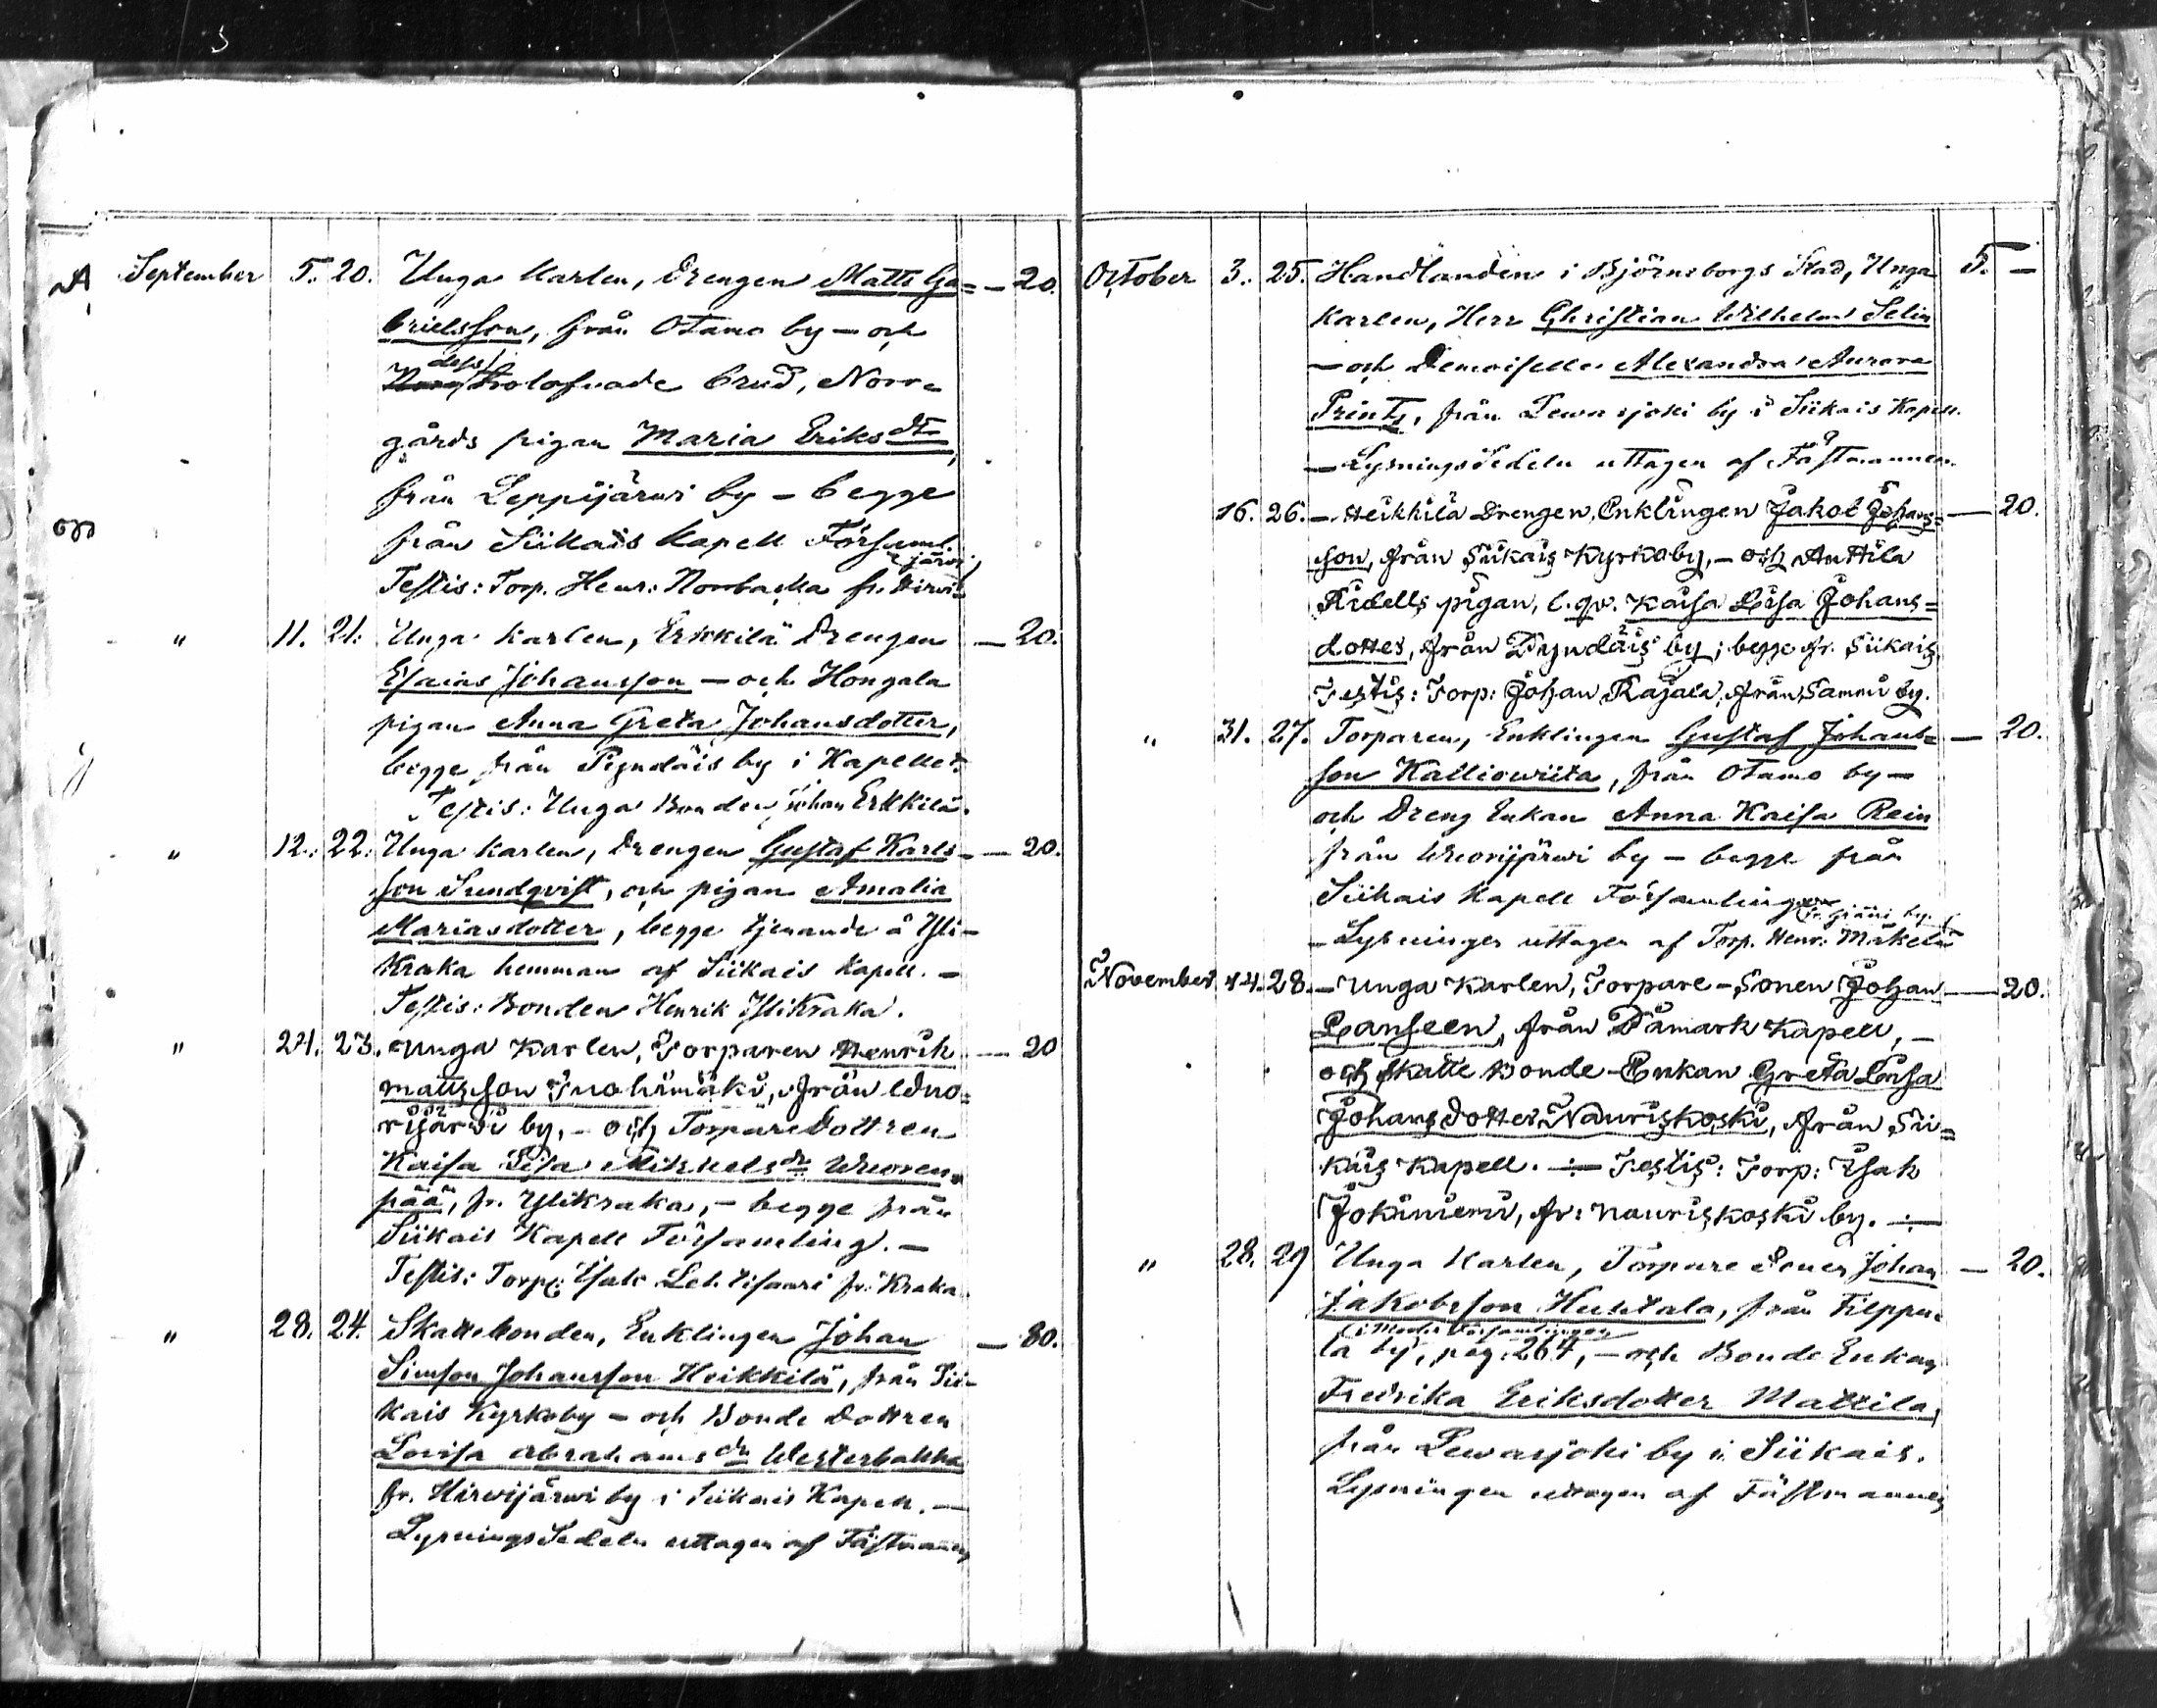 September 5. 20. Unga Karlen, Drengen Matts Ga= — 20.
brielsson, från Otamo by — och
dess trolofvade brud, Norr=
gårds pigan Maria Eriksdr
från Leppijärwi by — begge
från Siikais Kapell Församl.
järwi
Testis: Torp. Henr: Norrbacka fr. Hirwi
" 11. 21. Unga Karlen, Erkkilä Drengen — 20.
Esaias Johansson — och Hongala
pigan Anna Greta Johansdotter,
begge från Pyndäis by i Kapellet.
Testis: Unga Bonden Johan Erkkilä.
" 12. 22. Unga Karlen, Drengen Gustaf Karls= — 20.
son Sundqvist, och pigan Amalia
Mariasdotter, begge tjenande å Yli=
Kraka hemman af Siikais Kapell. —
Testis: Bonden Henrik YliKraka.
" 21. 23. Unga Karlen, Torparen Henrik — 20
Mattsson Inohrmäki, från Wuo=
rijärwi by, — och TorpareDottren
Kaisa Lisa Mikkelsdr Wuoren=
pää, fr. Ylikraka, — begge från
Siikais Kapell Församling. —
Testis: Torp: Isak Lehtisaari fr. Kraka
" 28. 24. Skattebonden, Enklingen Johan — 80.
Simson Johansson Heikkilä, från Sii=
kais Kyrkoby — och Bonde Dottren
Lovisa Abrahamsdr Westerbakka
fr. Hirwijärwi by i Siikais Kapell. —
LysningsSedeln uttagen af Fästmannen
October 3. 25. Handlanden i Björneborgs Stad, Unga 5. —
Karlen, Herr Christian Wilhelm Selin
— och Demoiselle Alexandra Aurora
Printz, från Lewasjoki by i Siikais Kapell.
— LysningsSedeln uttagen af Fästmannen.
16. 26. — Heikkilä Drengen, Enklingen Jakob Johans= — 20.
son, från Siikais Kyrkoby, — och Anttila
Ridells pigan, l. qv. Kaisa Lisa Johans=
dotter, från Pyndäis by; begge fr. Siikais
Testis: Torp: Johan Rajala, från Sammi by.
" 31. 27. Torparen, Enklingen Gustaf Johans= — 20.
son Kalliowiita, från Otamo by —
och Dreng Enkan Anna Kaisa Rein
från Wuorijärwi by — begge från
Siikais Kapell Församling
by.
— Lysningen uttagen af Torp. Henr: Mäkelä
November 14. 28. — Unga Karlen, Torpare-Sonen Johan — 20.
Lanseen, från Påmark Kapell, —
och Skatte Bonde-Enkan Greta Lovisa
Johansdotter Nauriskoski, från Sii=
kais Kapell. — Testis: Torp: Isak
Jokiniemi, fr: Nauriskoski by. —
" 28. 29 Unga Karlen, Torpare Sonen Johan — 20.
Jakobsson Huhtala, från Filppu=
i Moder Församlingen
la by, pag. 264, — och Bonde Enkan
Fredrika Eriksdotter Mattila,
från Lewasjoki by i Siikais.
Lysningen uttagen af Fästmannen